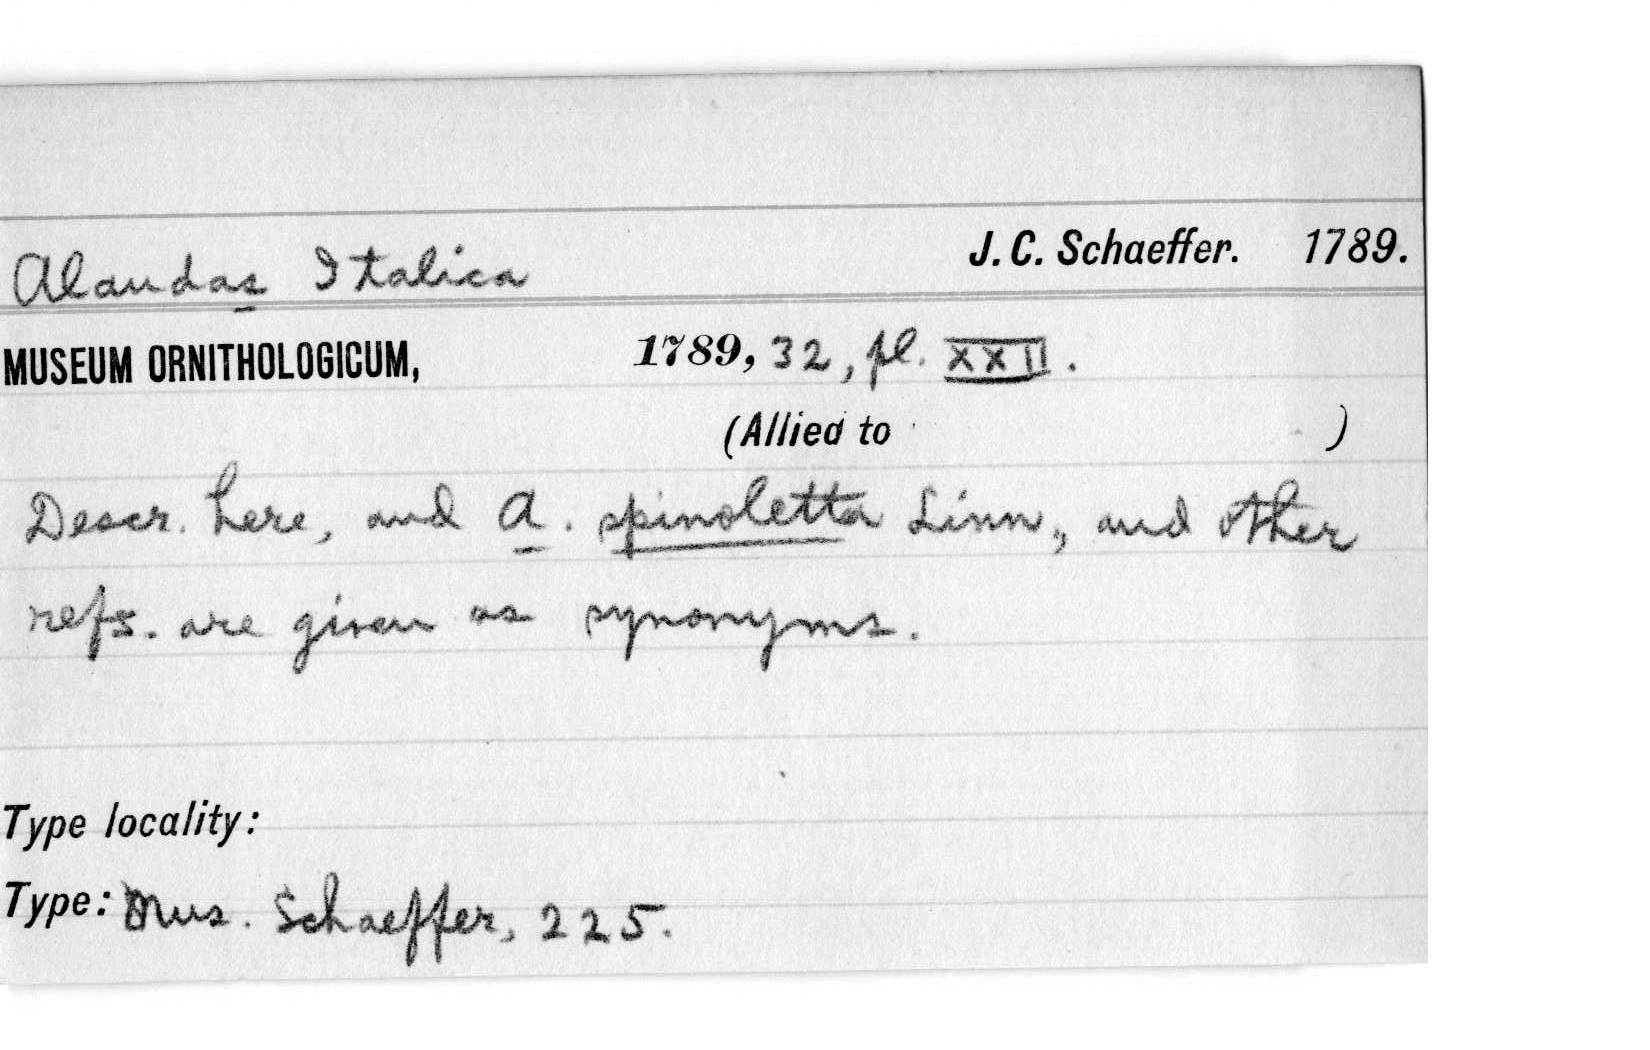 Alaudas Italica J. C. Schaeffer. 1789.
MUSEUM ORNITHOLOGICUM, 1789, 32, pl. XXII.
(Allied to )
Descr. here, and A. spinoletta Linn., and other
refs. are given as synonyms.
Type locality:
Type: Mus. Schaeffer, 225.